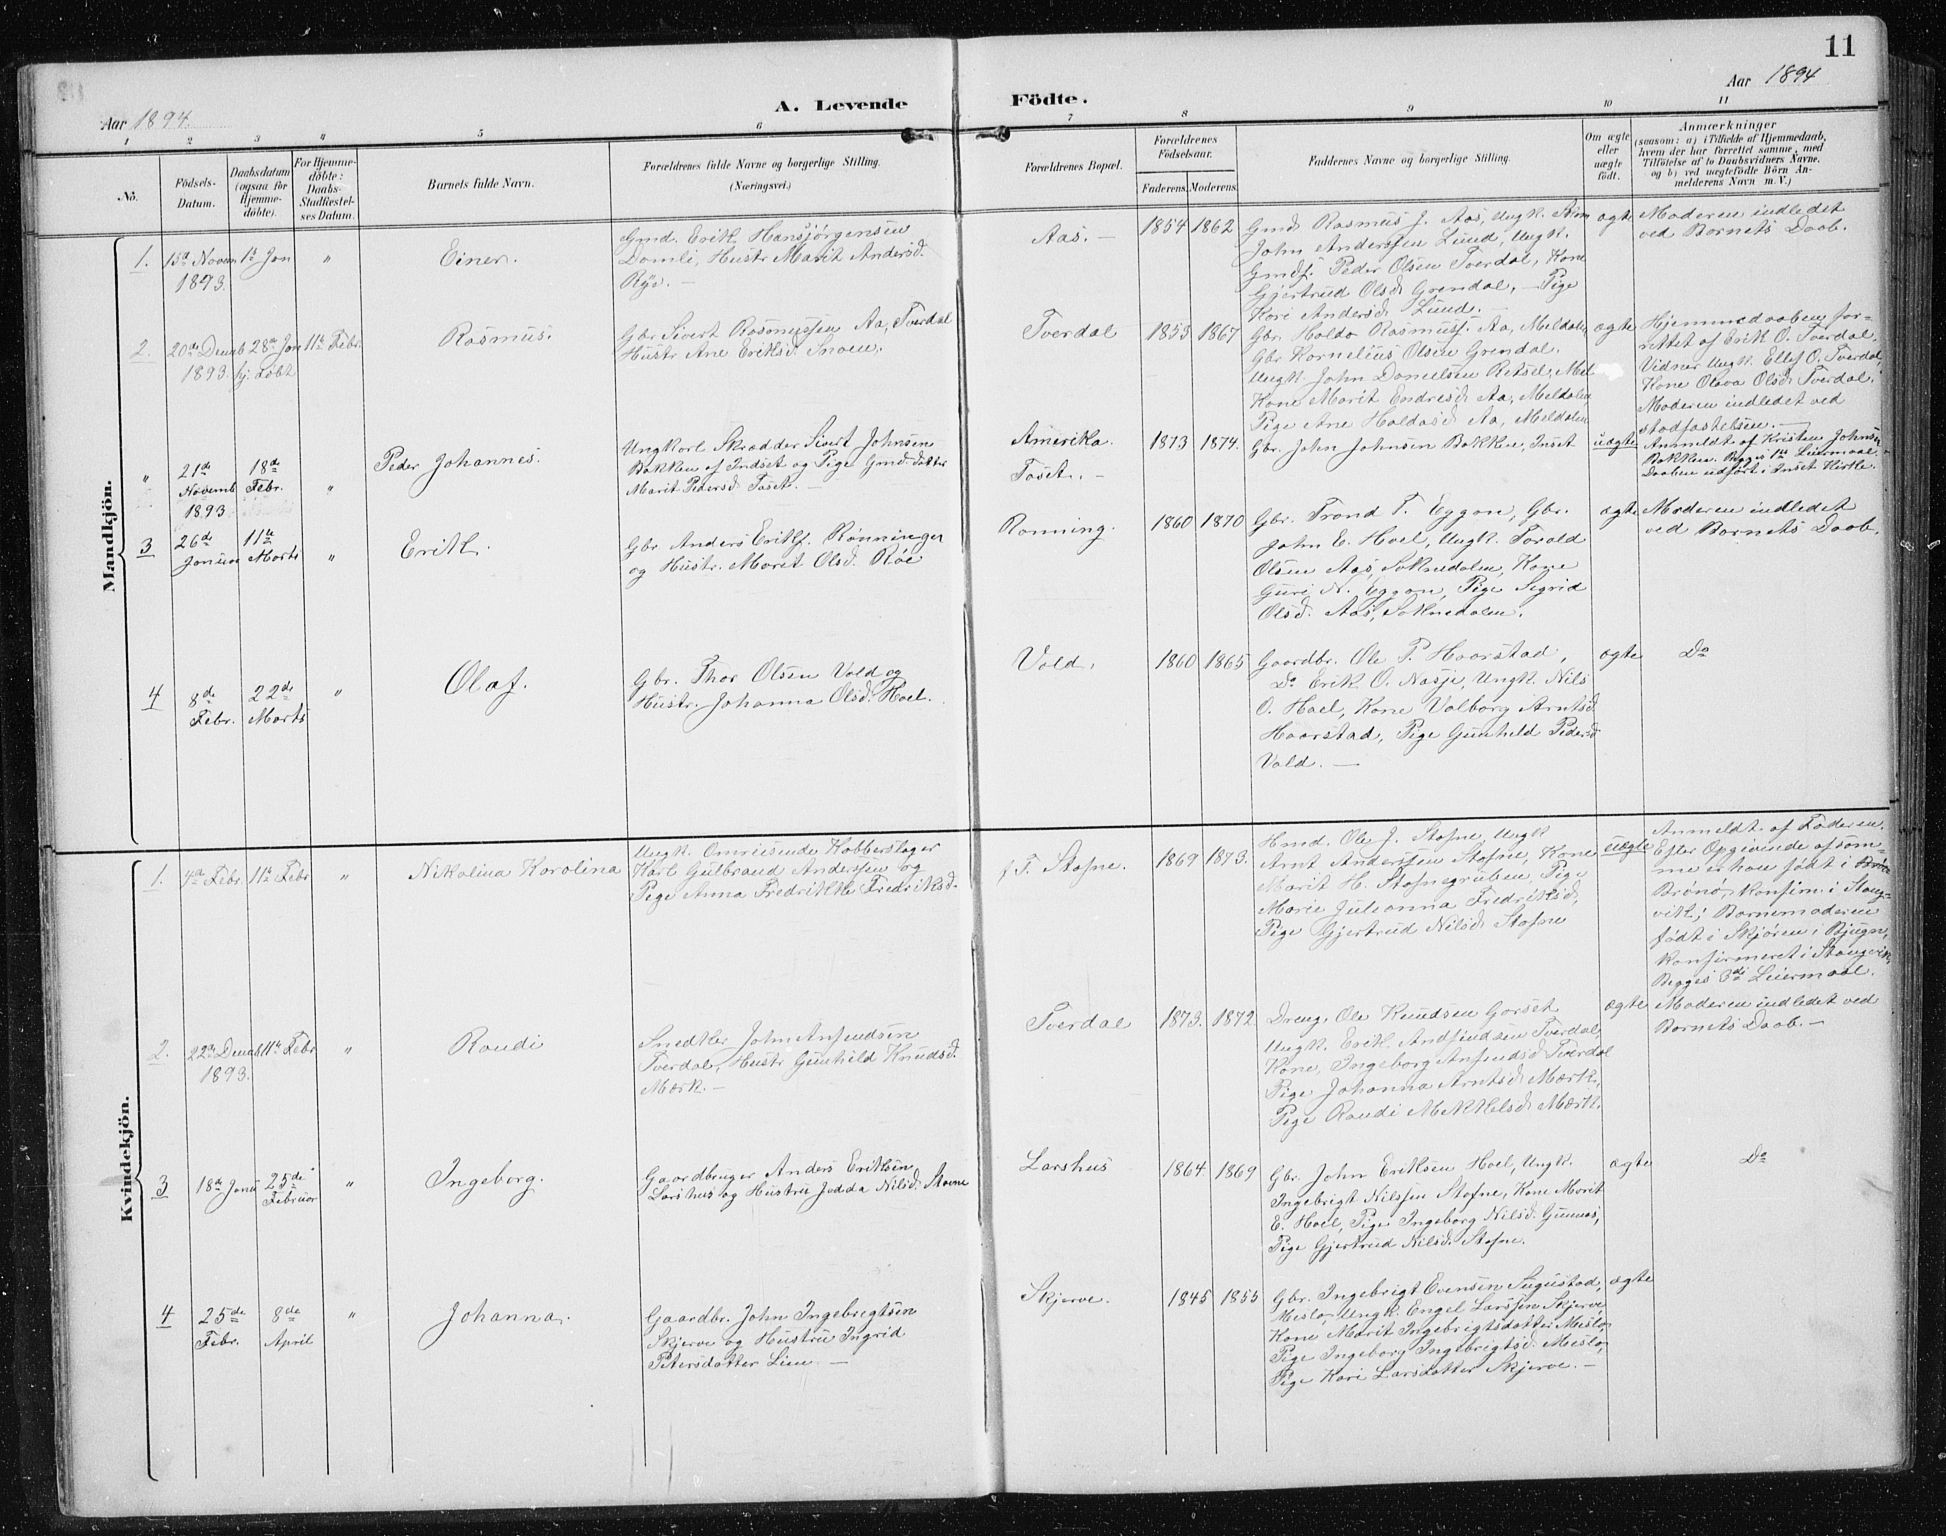 11
Aar 1894.
A. Levende Födte.
Aar 1894
1 2 3 4 5 6 7 8 9 10 11
No.
Födsels-Datum.
Daabsdatum (ogsaa for Hjemme-döbte).
For Hjemme-döbte: Daabs-Stadfestel-ses Datum.
Barnets fulde Navn.
Forældrenes fulde Navne og borgerlige Stilling.
(Næringsvei.)
Forældrenes Bopæl.
Forældrenes Födselsaar.
Faderens. Moderens.
Faddernes Navne og borgerlige Stilling.
Om ægte eller uægte födt.
Anmærkninger
(saasom: a) i Tilfælde af Hjemmedaab,
hvem der har forrettet samme, med
Tilföielse af to Daabsvidners Navne,
og b) ved uægtefödte Börn An-
melderens Navn m. V.)
Mandkjön.
1. 15de Novem 1893. 1ste Jan " Einer.
Gmd. Erik Hansjörgensen
Domli, Hustr. Marit Andersd.
Rye. —
Aas. — 1854 1862
Gmd. Rasmus J. Aas, Ungk.
John Anderssen Lund, Ungk.
Gmdf. Peder Olsen Tverdal, Kone
Gjertrud Olsd. Grendal, — Pige
Kari Andersd. Lund.
ægte
Moderen indledet
ved Barnets Daab.
2. 20de Decmb 1893. 28de Jan hj. döbt 11te Febr. Rasmus.
Gbr. Sivert Rasmussen Aa, Tverdal
Hustr. Ane Eriksd. Snoen.
Tverdal 1853 1867
Gbr. Haldo Rasmusf. Aa, Meldalen,
Gbr. Kornelius Olsen Grendal.
Ungk. John Danielsen Retsel, Mel.
Kone Marit Endresd. Aa, Meldalen,
Pige Ane Haldosd. Aa, Meldalen
ægte
Hjemmedaaben for-
rettet af Erik O. Tverdal,
Vidner Ungk. Ellef O. Tverdal,
Kone Olava Olsd. Tverdal.
Moderen indledet ved
stadfæstelsen. —
" 21de Novemb 1893 18de Febr. " Peder Johannes.
Ungkarl Skrædder Sivert Johnsen
Bakken af Indset og Pige Gmd. datter
Marit Pedersd. Toset. —
Amerika.
Toset. — 1873 1874.
Gbr. John Johnsen Bakken, Inset
uægte
Anmeldt af Kristen Johnsen
Bakken. Begges 1ste Leiermaal.
Daaben udfört i Inset Kirke.
3 26de Januar 11te Marts " Erik.
Gbr. Anders Eriksf. Rönningen
og Hustr. Marit Olsd. Röe
Ronning. 1860 1870
Gbr. Trond T. Eggan, Gbr.
John E. Hoel, Ungk. Torald
Olsen Aas, Soknedalen, Kone
Guri N. Eggan, Pige Sigrid
Olsd. Aas, Soknedalen.
ægte
Moderen indledet
ved Barnets Daab.
4 8de Febr. 22de Marts " Olaf.
Gbr. Thor Olsen Vold og
Hustr. Johanna Olsd. Hoel.
Vold. 1860 1865
Gaardbr. Ole P. Haarstad,
Do Erik O. Nasje, Ungk. Nils
O. Hoel, Kone Valborg Arntsd.
Haarstad, Pige Gunhild Pedersd
Vold. —
ægte Do
Kvindekjön.
1. 4de Febr. 11te Febr " Nikolina Karolina
Ungk. Omreisende Kobberslager
Karl Gulbrand Anderssen og
Pige Anna Fredrikke Fredriksd.
f. T. Stofne. 1869 1873.
Hmd. Ole J. Stofne, Ungk
Arnt Anderssen Stofne, Kone
Marit H. Stofnegruben, Pige
Marie Julianna Fredriksd,
Pige Gjertrud Nilsd. Stofne
uægte
Anmeldt af Faderen.
Efter Opgivende af sam-
me er han födt i
Brönö, konfirm. i Stang-
vik; Barnemoderen
födt i Skjören i Bjugn,
konfirmeret i Stangvik.
Begges 3de Leiermaal.
2. 22de Decmb 1893. 11te Febr " Randi
Snedker John Anfindsen
Tverdal, Hustr. Gunhild Knudsd.
Mærk. —
Tverdal 1873. 1872
Dreng Ole Knudsen Gorset
Ungk. Erik Andfindsen Tverdal,
Kone, Ingeborg Anfindsd. Tverdal
Pige Johanna Arntsd. Mærk,
Pige Randi Mekkelsd. Mærk.
ægte
Moderen indledet ved
Barnets Daab. —
3 18de Janu 25de Februar " Ingeborg.
Gaardbruger Anders Eriksen
Larshus og Hustru Jodda Nilsd. Stavne
Larshus 1864 1869
Gbr. John Eriksen Hoel, Ungk.
Ingebrigt Nilssen Stofne, Kone Marit
E. Hoel, Pige Ingeborg Nilsd. Gunnes,
Pige Gjertrud Nilsd. Stofne.
ægte Do
4 25de Febr. 8de April " Johanna.
Gaardbr. John Ingebrigtsen
Skjerve og Hustru Ingrid
Petersdatter Lien. —
Skjerve. 1845 1855
Gbr. Ingebrigt Evensen Sugustad,
Meslo, Ungk. Engel Larssen Skjerve,
Kone Marit Ingebrigtsdatter Meslo,
Pige Ingeborg Ingebrigtsd. Meslo,
Pige Kari Larsdatter Skjerve. —
ægte